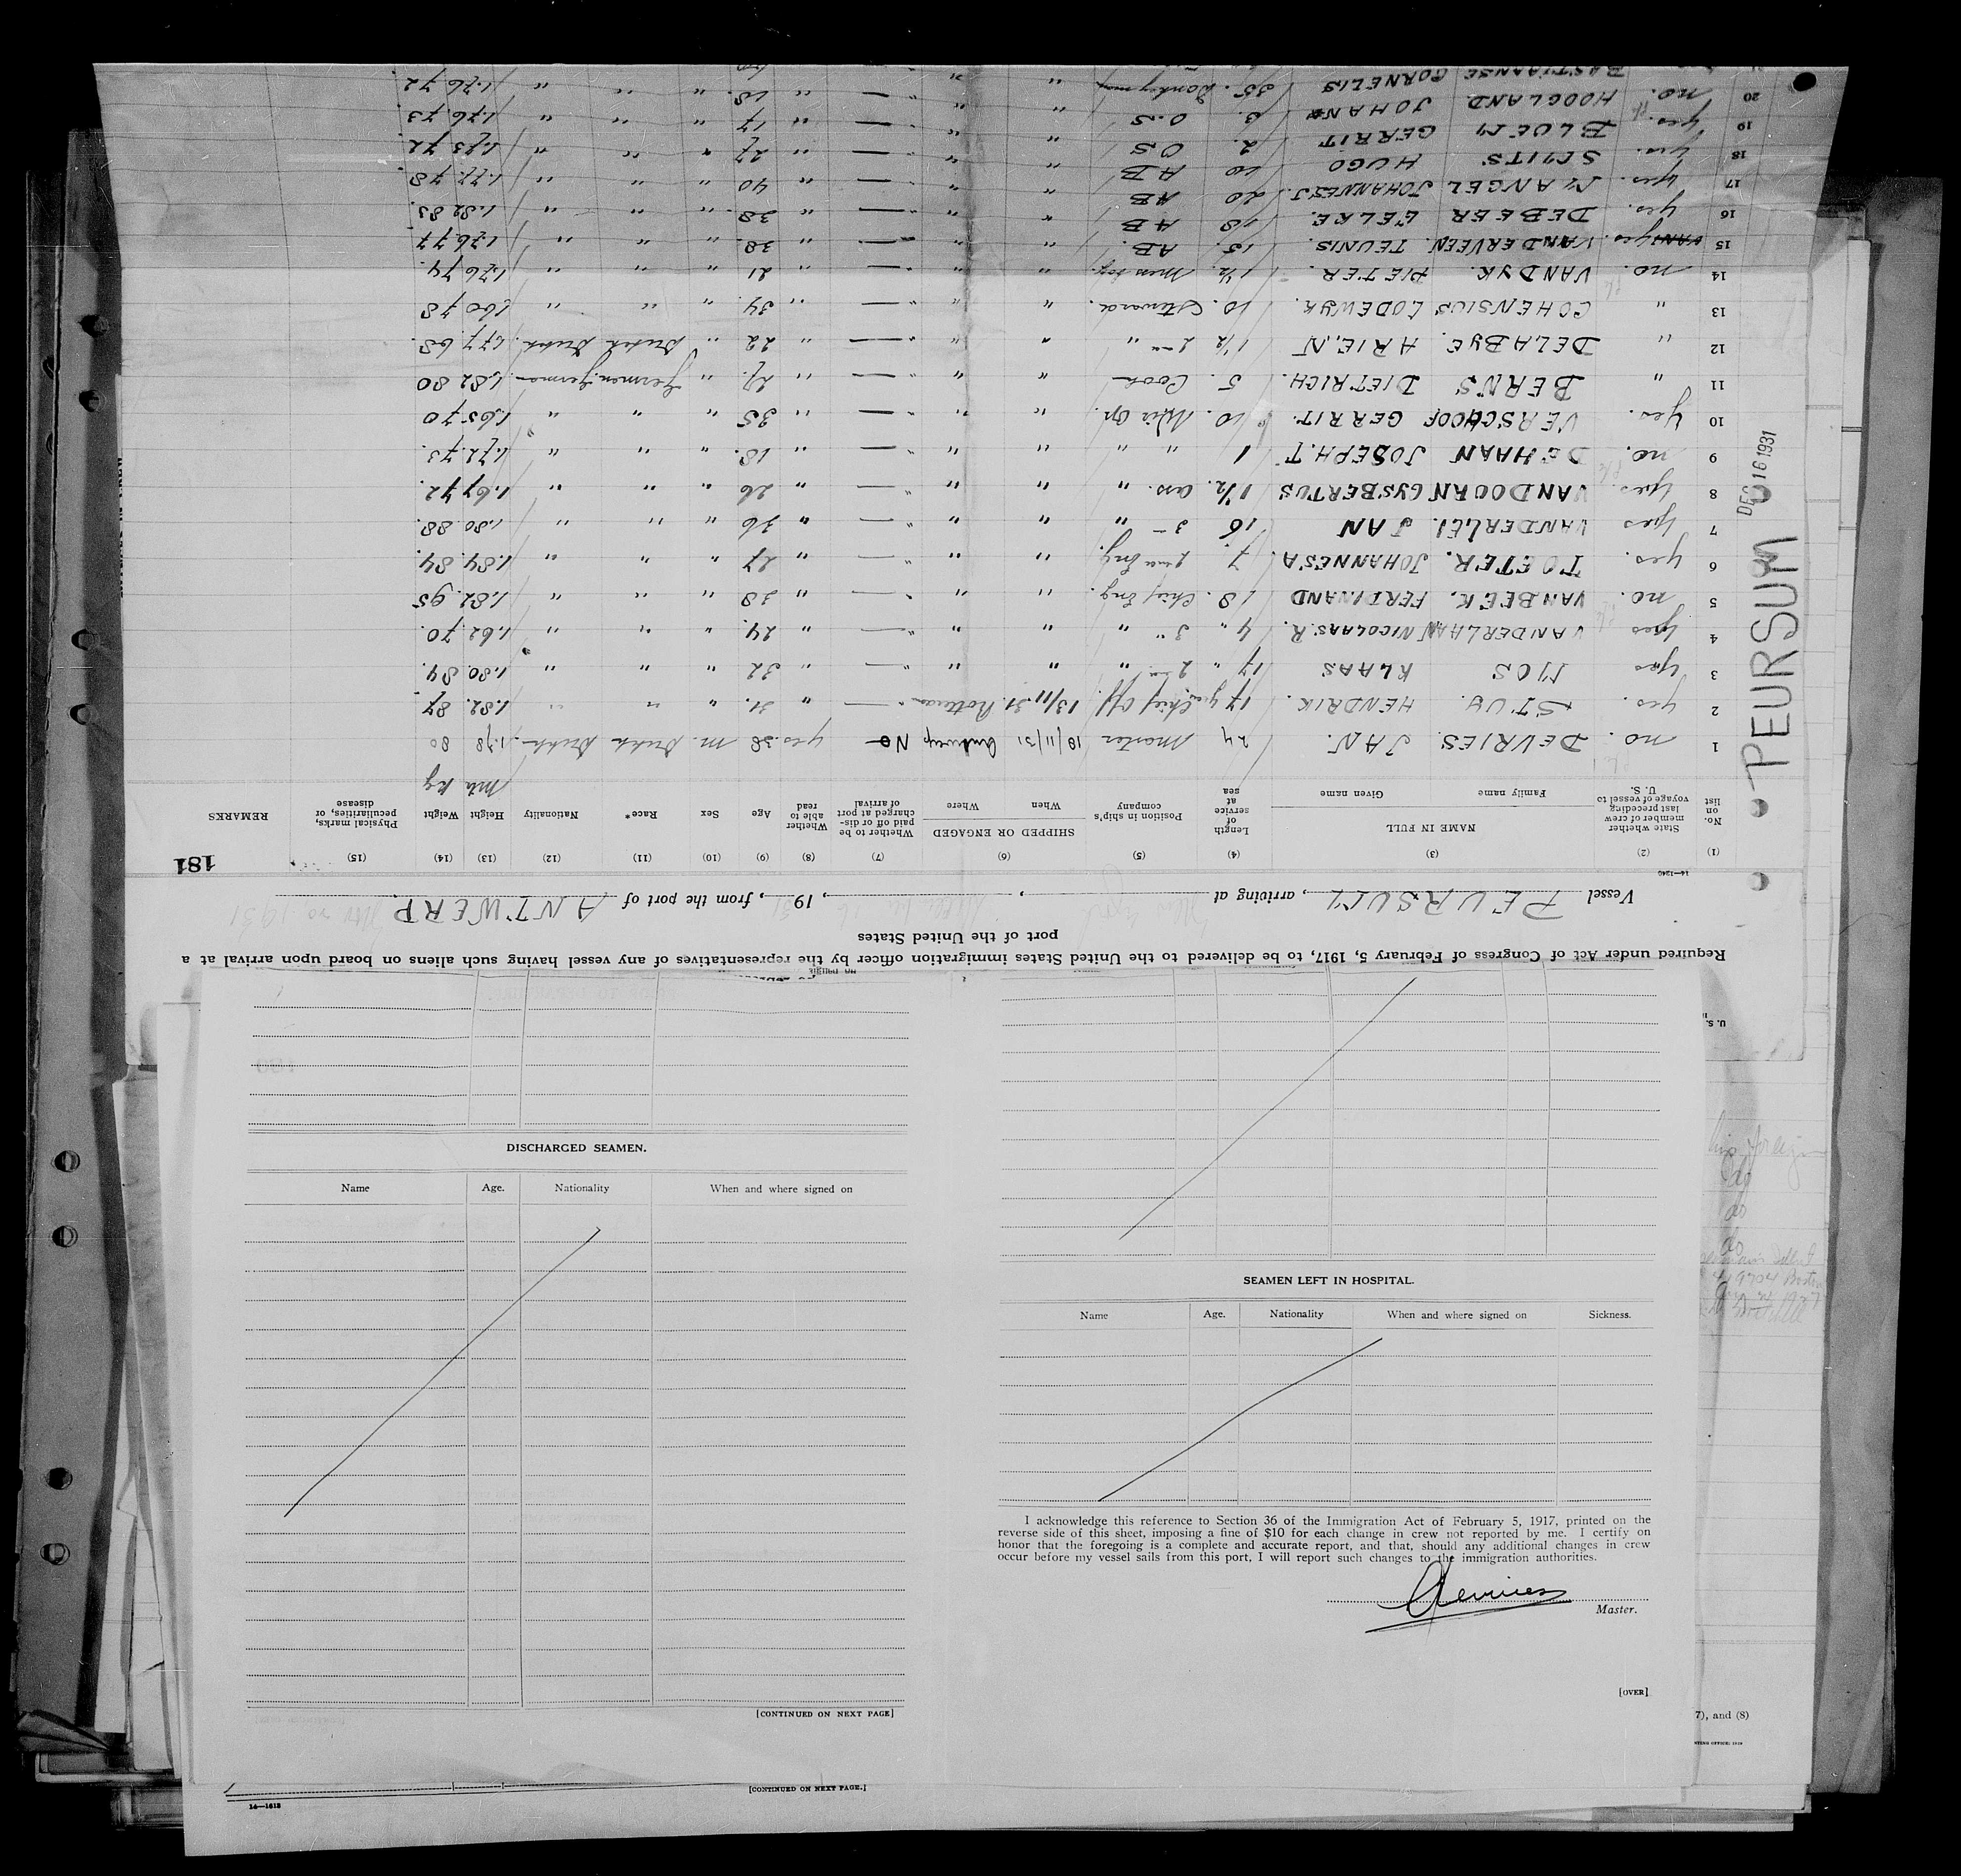 Required under Act of Congress of February 5, 1917, to be delivered to the United States immigration officer by the representatives of any vessel having such aliens on board upon arrival at a
port of the United States
Vessel PEURSUM, arriving at , 1931, from the port of ANTWERP
14—1240
181
(1) (2) (3) (4) (5) (6) (7) (8) (9) (10) (11) (12) (13) (14) (15)
No. on list State whether member of crew last preceding voyage of vessel to U. S. NAME IN FULL Family name Given name Length of service at sea Position in ship's company SHIPPED OR ENGAGED When Where Whether to be paid off or discharged at port of arrival Whether able to read Age Sex Race* Nationality Height Weight Physical marks, peculiarities, or disease REMARKS
Mtr Kg
1 no. DEVRIES. JAN. 24 Master 10/11/31 Antwerp No yes 38 m. Dutch Dutch 1.78 80
2 yes. STUY. HENDRIK. 17 yrs Chief Off. 13/11.31. Rotterdam " — " 31. " " " 1.82. 87.
3 yes MOS KLAAS 17 " 2nd " " " " — " 32 " " " 1.80. 84
4 yes VANDERLAAN NICOLAAS.R. 4 " 3 " " " " " — " 24. " " " 1.62. 70.
5 no. VANBEEK. FERDINAND 18. Chief Eng. " " " — " 38 " " " 1.82. 95
6 yes. TOETER. JOHANNES A. 7. 2nd Eng. " " " — " 27 " " " 1.84. 84.
7 yes VANDERLEI. JAN 16 3 — " " " " — " 36 " " " 1.80. 88.
8 yes. VANDOORN GYSBERTUS 1½. ass. " " " " — " 26 " " " 1.67 72.
9 no. DEHAAN JOSEPH.T. 1 " " " " " — " 18. " " " 1.72. 73.
10 yes. VERSCHOOF GERRIT. 10. Wir. Op. " " " — " 35 " " " 1.65 70
11 " BERNS DIETRICH. 5. Cook " " " — " 29. " German. German 1.82 80
12 " DELABYE. ARIE.N 1½ 2nd " " " " — " 22 " Dutch Dutch 1.77 68.
13 " COHENSIUS LODEWYK. 10. Steward. " " " — " 34. " " " 1.60 78
14 no. VANDYK. PIETER. 1½. Mess boy. " " " — " 21 " " " 1.76 74.
15 yes. VANDERVEEN. TEUNIS. 15. AB. " " " — " 38. " " " 1.76. 77
16 yes. DEBEER EELKE. 18 AB " " " — " 38. " " " 1.82 83.
17 yes. MANGEL JOHANNES J. 20 AB " " " — " 40 " " " 1.77. 78
18 yes. SMITS HUGO 10 AB " " " — " 27 " " " 1.73 72.
19 yes. BLOEM GERRIT 2. O.S " " " — " 17 " " " 1.76. 73
20 no. HOOGLAND JOHAN 3. O.S " " " — " 18. " " " 1.76 72
BASTIAANSE CORNELIS 35. Donkeyman
PEURSUM DEC 16 1931
U. S.
DISCHARGED SEAMEN.
Name Age. Nationality When and where signed on
[CONTINUED ON NEXT PAGE]
SEAMEN LEFT IN HOSPITAL.
Name Age. Nationality When and where signed on Sickness.
I acknowledge this reference to Section 36 of the Immigration Act of February 5, 1917, printed on the
reverse side of this sheet, imposing a fine of $10 for each change in crew not reported by me. I certify on
honor that the foregoing is a complete and accurate report, and that, should any additional changes in crew
occur before my vessel sails from this port, I will report such changes to the immigration authorities.
Master.
[OVER]
7), and (8)
[CONTINUED ON NEXT PAGE.]
14—1618
do
do
do